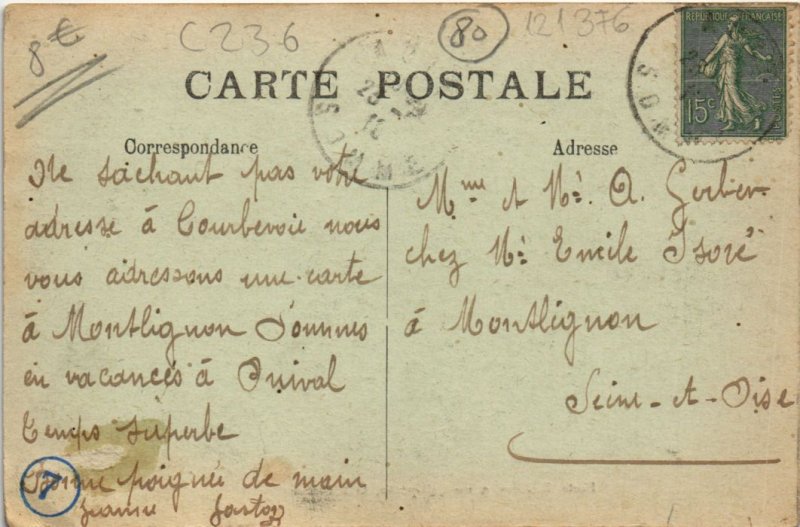 8€
C236
80
121376
CARTE POSTALE
REPUBLIQUE FRANÇAISE
15c
POSTES
SOMME
Correspondance
Ne sachant pas votre
adresse à Courbevoie nous
vous adressons une carte
à Montlignon Sommes
en vacances à Onival
temps superbe
Bonne poignée de main
Jeanne
7
Adresse
Mme et Mr. A. Gerbier
chez Mr. Emile Isoré
à Montlignon
Seine-et-Oise